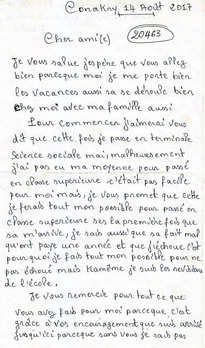 Conakry, 14 Août 2017
Cher ami(e)
20463
Je vous salue j'espère que vous allez
bien parceque moi je me porte bien
les vacances aussi sa se déroule bien
chez moi avec ma famille aussi
Pour commencer j'aimerai vous
dit que cette fois je passe en terminale
Science sociale mai, malheureusement
j'ai pas eu ma moyenne pour passé
en classe superieure c'était pas facile
pour moi mais, je vous promet que cette
je ferais tout mon possible pour passé en
classe superieure ses la première fois que
sa m'arrive, je sais aussi que sa fait mal
qu'ont paye une année et que j'échoue c'est
pourquoi je fais tout mon possible pour ne
pas échoué mais Kamême je suis les revisions
de l'école.
Je vous remercie pour tout ce que
vous avez fais pour moi parceque c'est
grâce à vos encouragement que suis arrivée
jusqu'ici parceque sans vous je sais pas